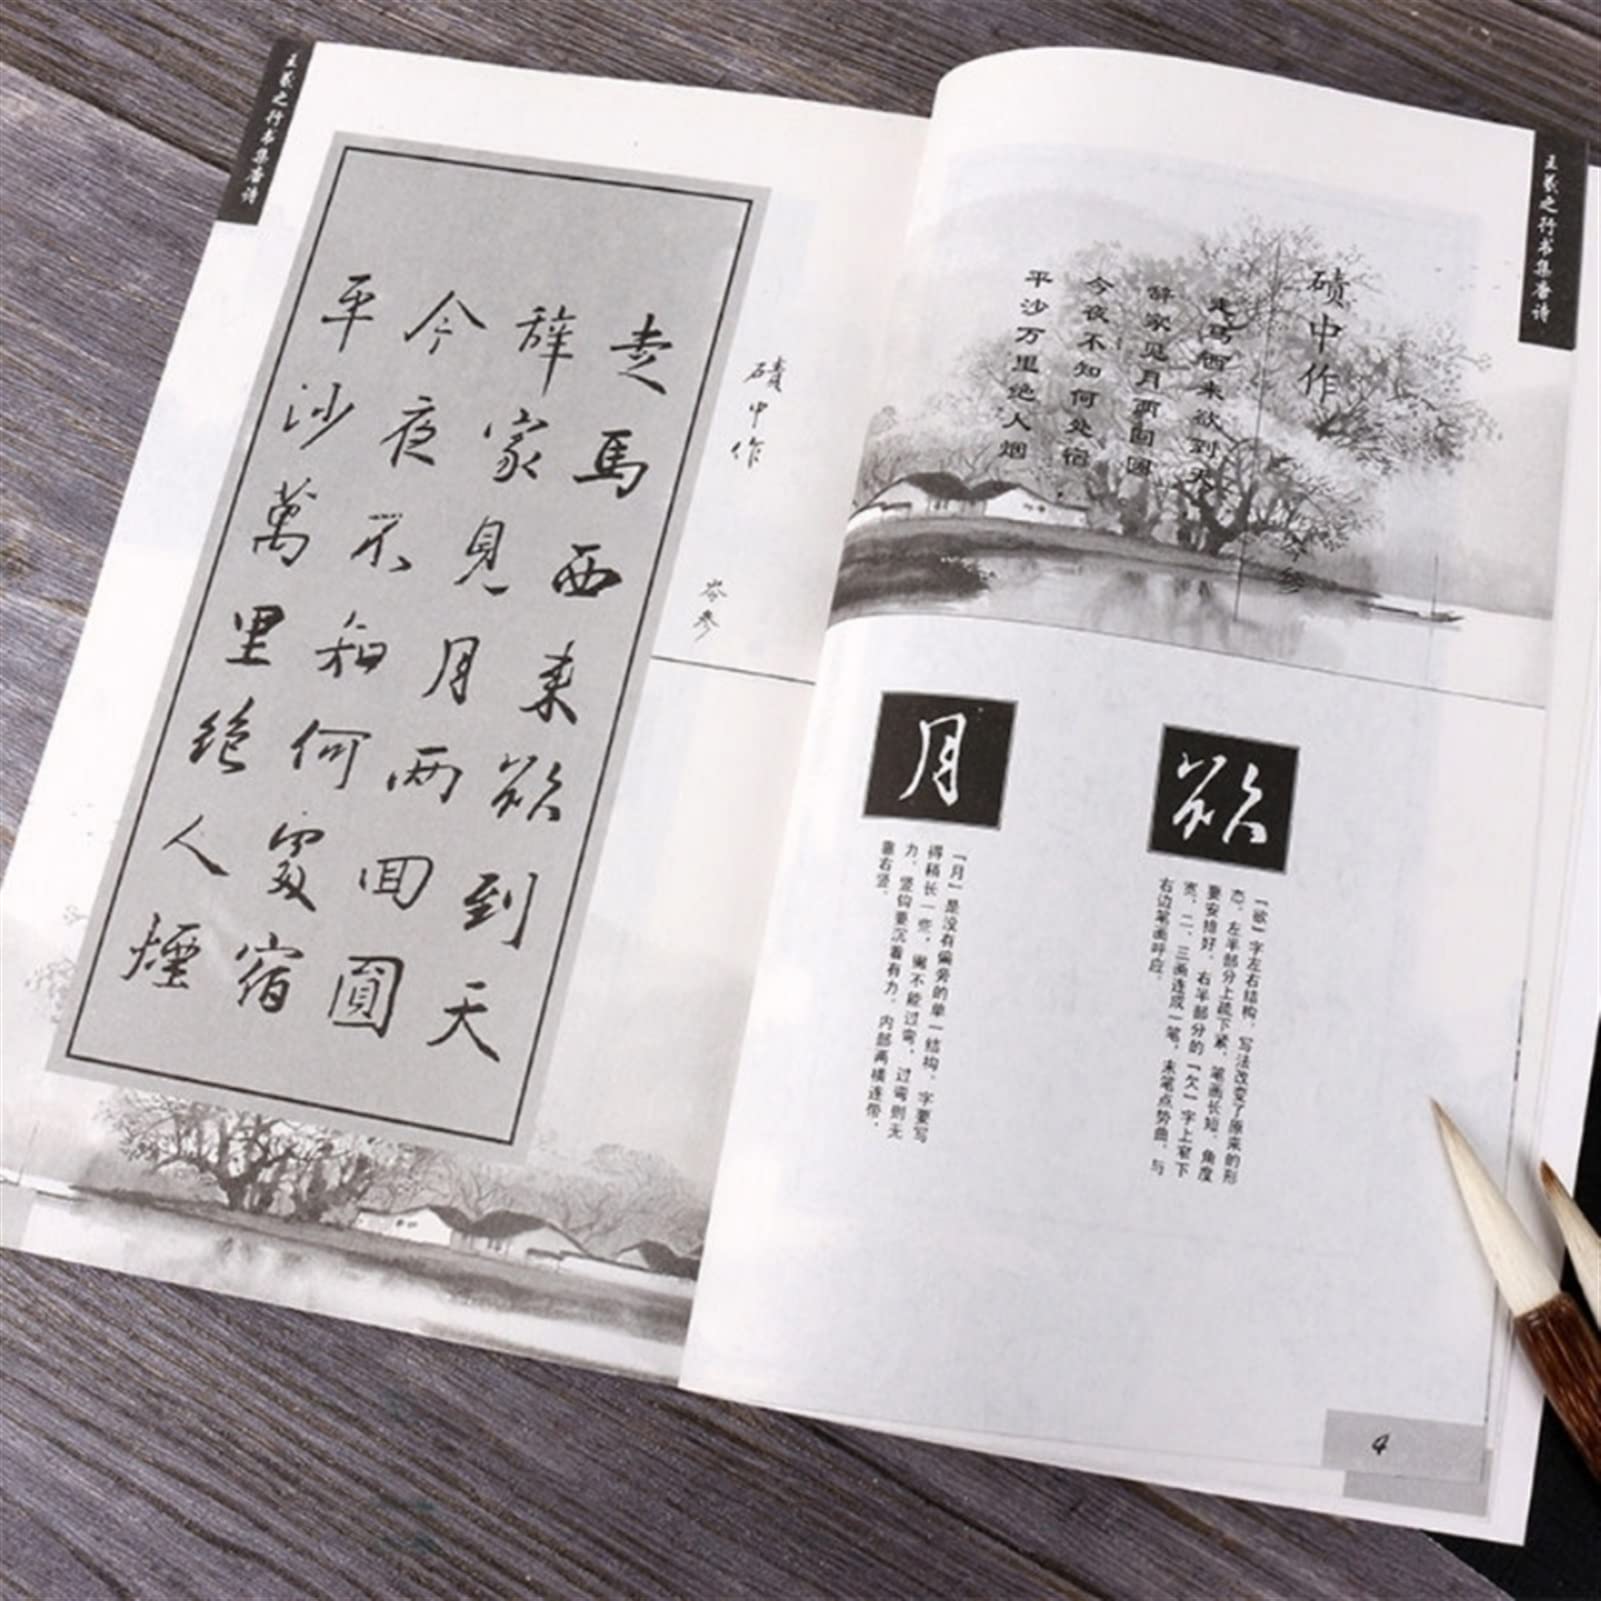 王羲之行书集唐诗
走馬西来欲到天
辞家見月两回圓
今夜不知何處宿
平沙萬里絶人煙
磧中作
岑參
王羲之行书集唐诗
碛中作
岑参
走马西来欲到天
辞家见月两回圆
今夜不知何处宿
平沙万里绝人烟
欲
「欲」字左右结构，写法改变了原来的形
态，左半部分上疏下紧，笔画长短、角度
要安排好，右半部分的「欠」字上窄下
宽，二、三画连成一笔，末笔点势曲，与
右边笔画呼应。
月
「月」是没有偏旁的单一结构，字要写
得稍长一些，撇不能过弯，过弯则无
力，竖钩要沉着有力，内部两横连带，
靠右竖。
4